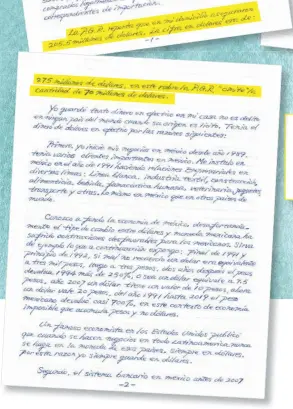 comprados legalmente
correspondientes de importación.
La P.G.R. reporta que en mi domicilio aseguraron
205.5 millones de dólares. La cifra en dólares era de:
-1-
275 millones de dólares, en este rubro la P.G.R. "omitió" la
cantidad de 70 millones de dólares.
Yo guardé tanto dinero en efectivo en mi casa no es delito
en ningún país del mundo cuando su origen es lícito. Tenía el
dinero en efectivo por las razones siguientes:
Primero, yo inicié mis negocios en México desde año 1989,
tenía varios clientes importantes en México. Me instalé en
México en el año de 1991 haciendo relaciones
diversas líneas: Línea blanca, industria textil, construcción,
alimenticia, bebida, farmacéutica humana, veterinaria, juguetes,
transporte y otras. Lo mismo en México que en otros países de
mundo.
Conozco a fondo la economía de México, desafortunada-
mente el tipo de cambio entre dólares y moneda mexicana ha
sufrido destrucciones desfavorables para los mexicanos. Sirva
de ejemplo lo que a continuación expongo: final de 1991 y
principio de 1992, si mal no recuerdo un dólar era equivalente
a tres mil pesos, luego a tres pesos, dos años después el peso
devaluó 1994 más de 250%, o sea un dólar equivale a 7.5
pesos, año 2007 un dólar tiene un valor de 10 pesos, ahora
un dólar vale 20 pesos, del año 1991 hasta 2019 el peso
mexicano devaluó casi 700%, en este contexto de economía
imposible que acumula pesos y no dólares.
Un famoso economista en los Estados Unidos publicó
que cuando se hacen negocios en toda Latinoamérica nunca
se haga en la moneda de esos países, siempre en dólares,
por esta razón yo siempre guardé en dólares.
Segundo, el sistema bancario en México antes de 2007
-2-